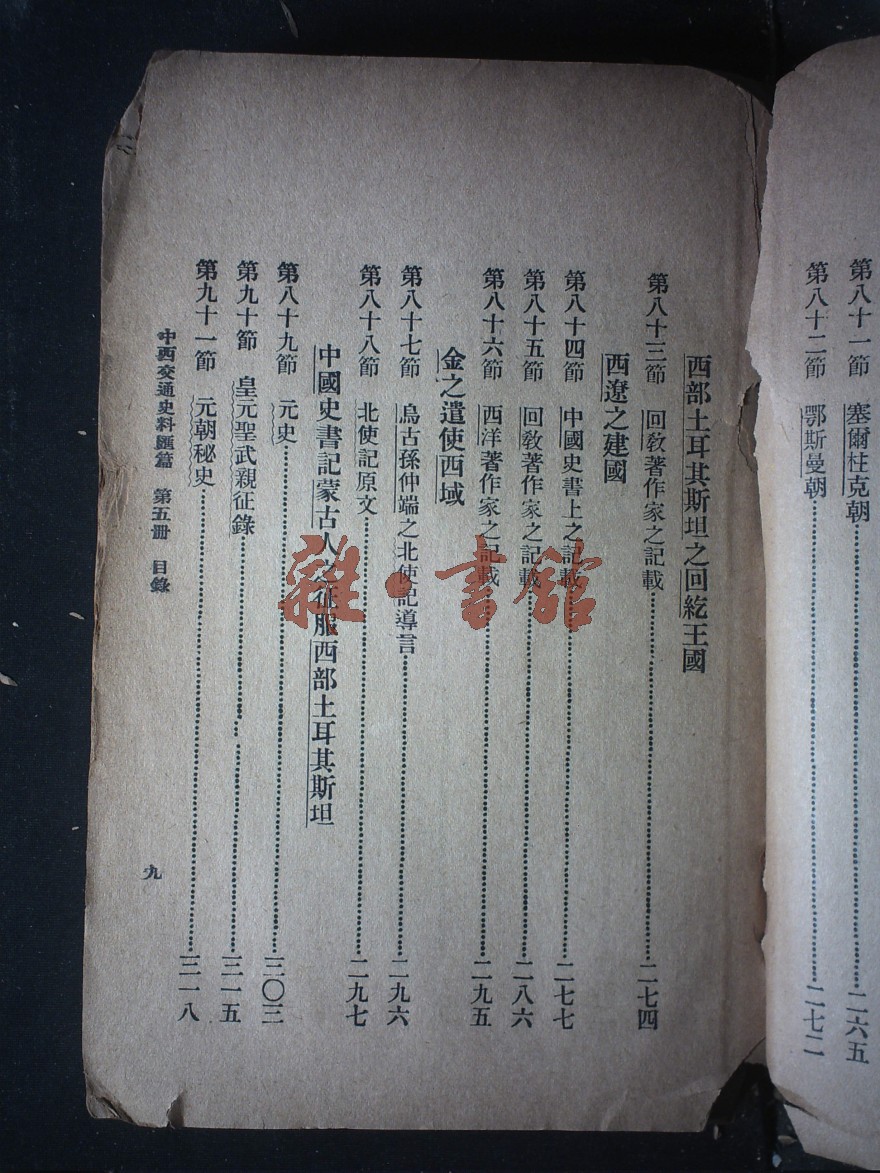 第八十一節 塞爾柱克朝……二六五
第八十二節 鄂斯曼朝……二七二
西部土耳其斯坦之回紇王國
第八十三節 回敎著作家之記載……二七四
西遼之建國
第八十四節 中國史書上之記載……二七七
第八十五節 回敎著作家之記載……二八六
第八十六節 西洋著作家之記載……二九五
金之遣使西域
第八十七節 烏古孫仲端之北使記導言……二九六
第八十八節 北使記原文……二九七
中國史書記蒙古人之征服西部土耳其斯坦
第八十九節 元史……三〇三
第九十節 皇元聖武親征錄……三一五
第九十一節 元朝秘史……三一八
中西交通史料匯篇 第五冊 目錄
九
雜·書館